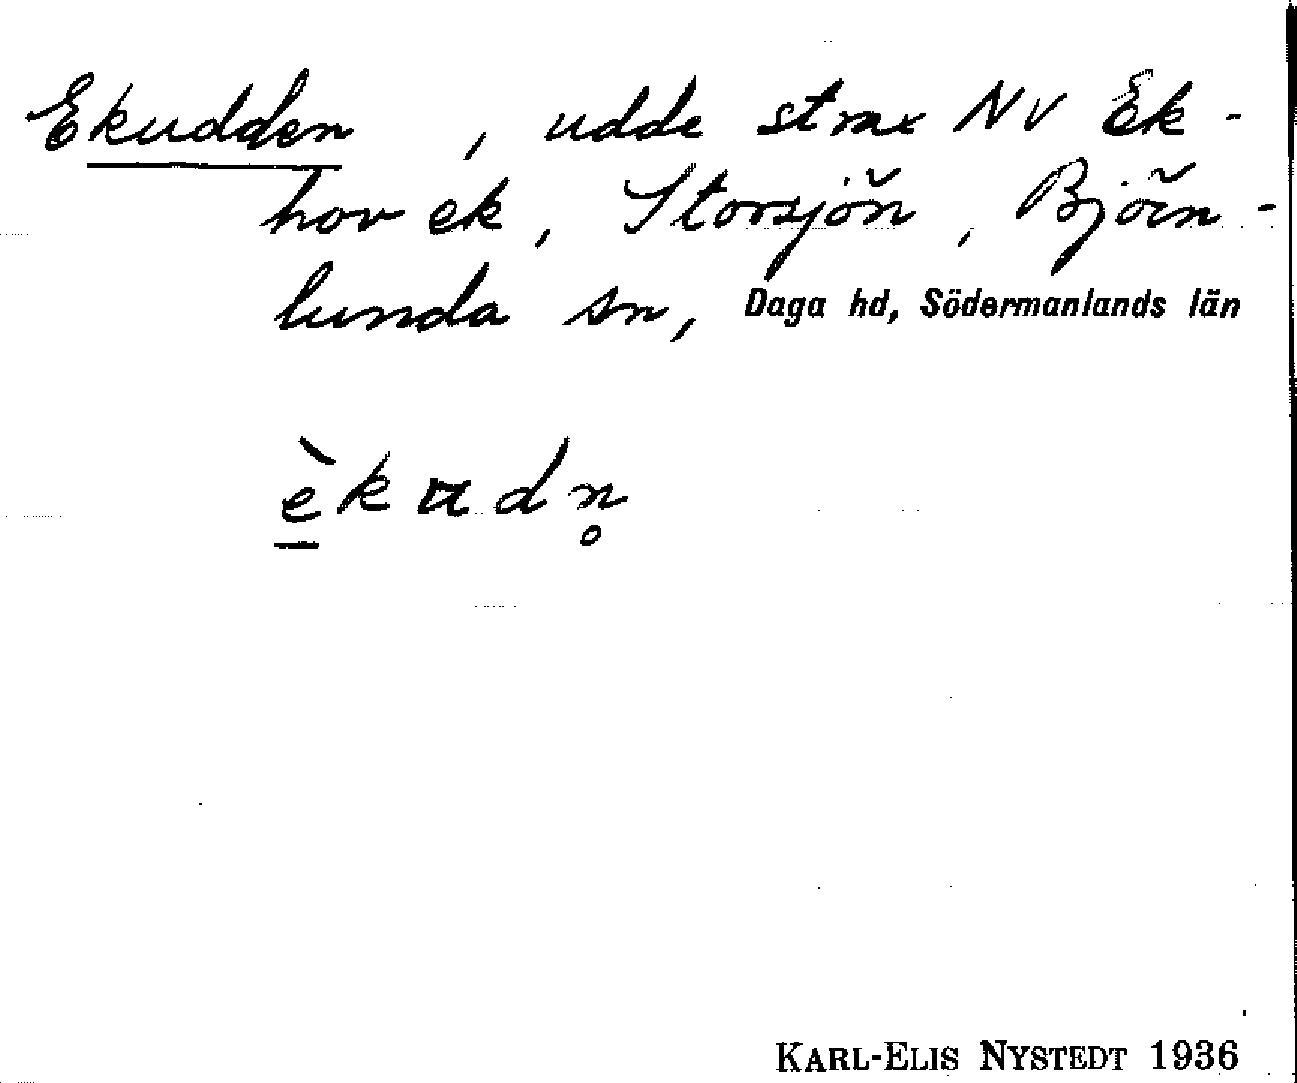 Ekudden, udde strax NV Ek-
hov ek, Storsjön, Björn-
lunda sn, Daga hd, Södermanlands län
èkudn̥
KARL-ELIS NYSTEDT 1936